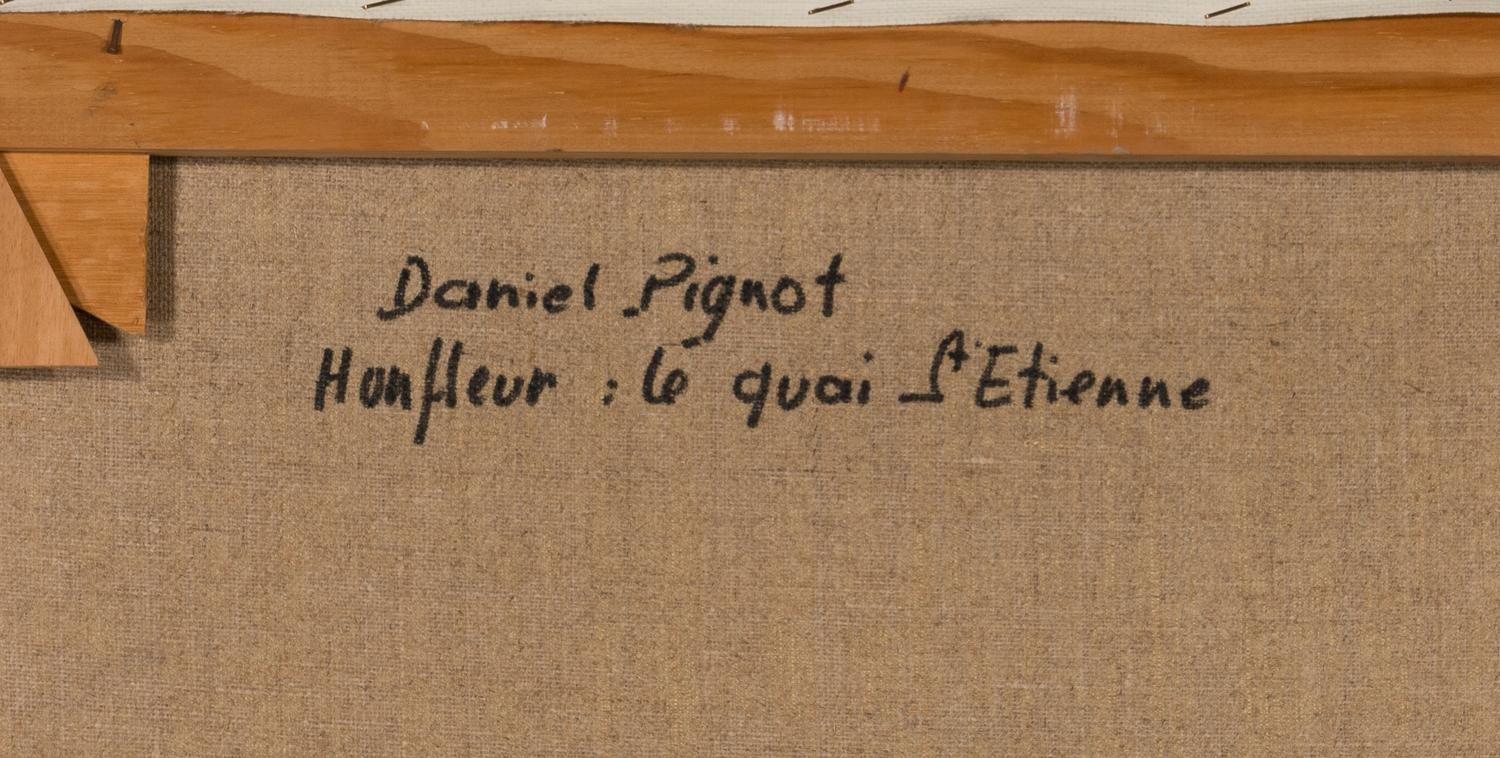 Daniel Pignot
Honfleur : le quai St Etienne